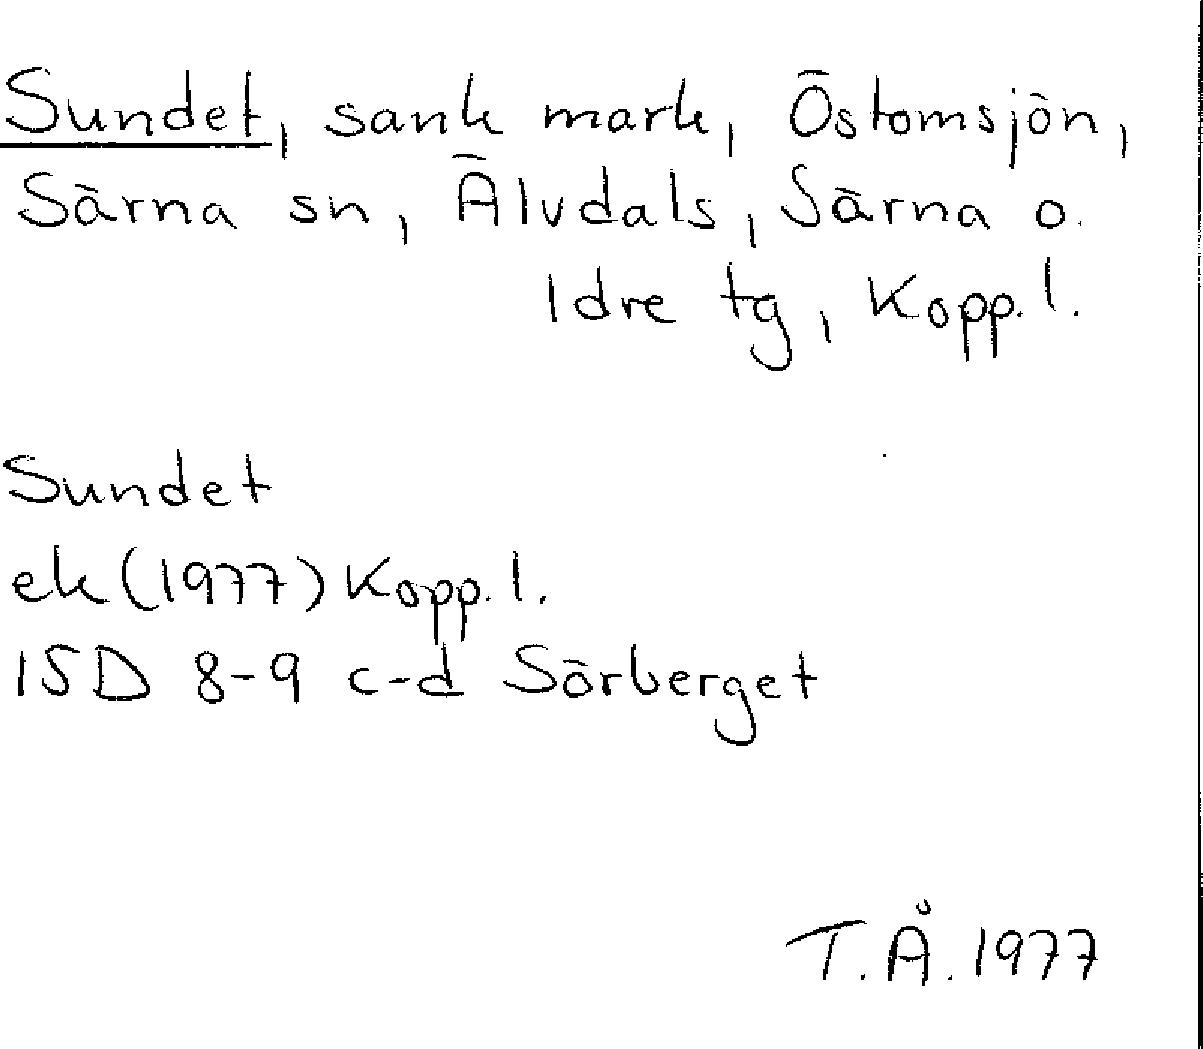 Sundet, sank mark, Östomsjön,
Särna sn, Älvdals, Särna o.
Idre tg, Kopp. l.
Sundet
ek (1977) Kopp. l.
15D 8-9 c-d Sörberget
T.Å. 1977